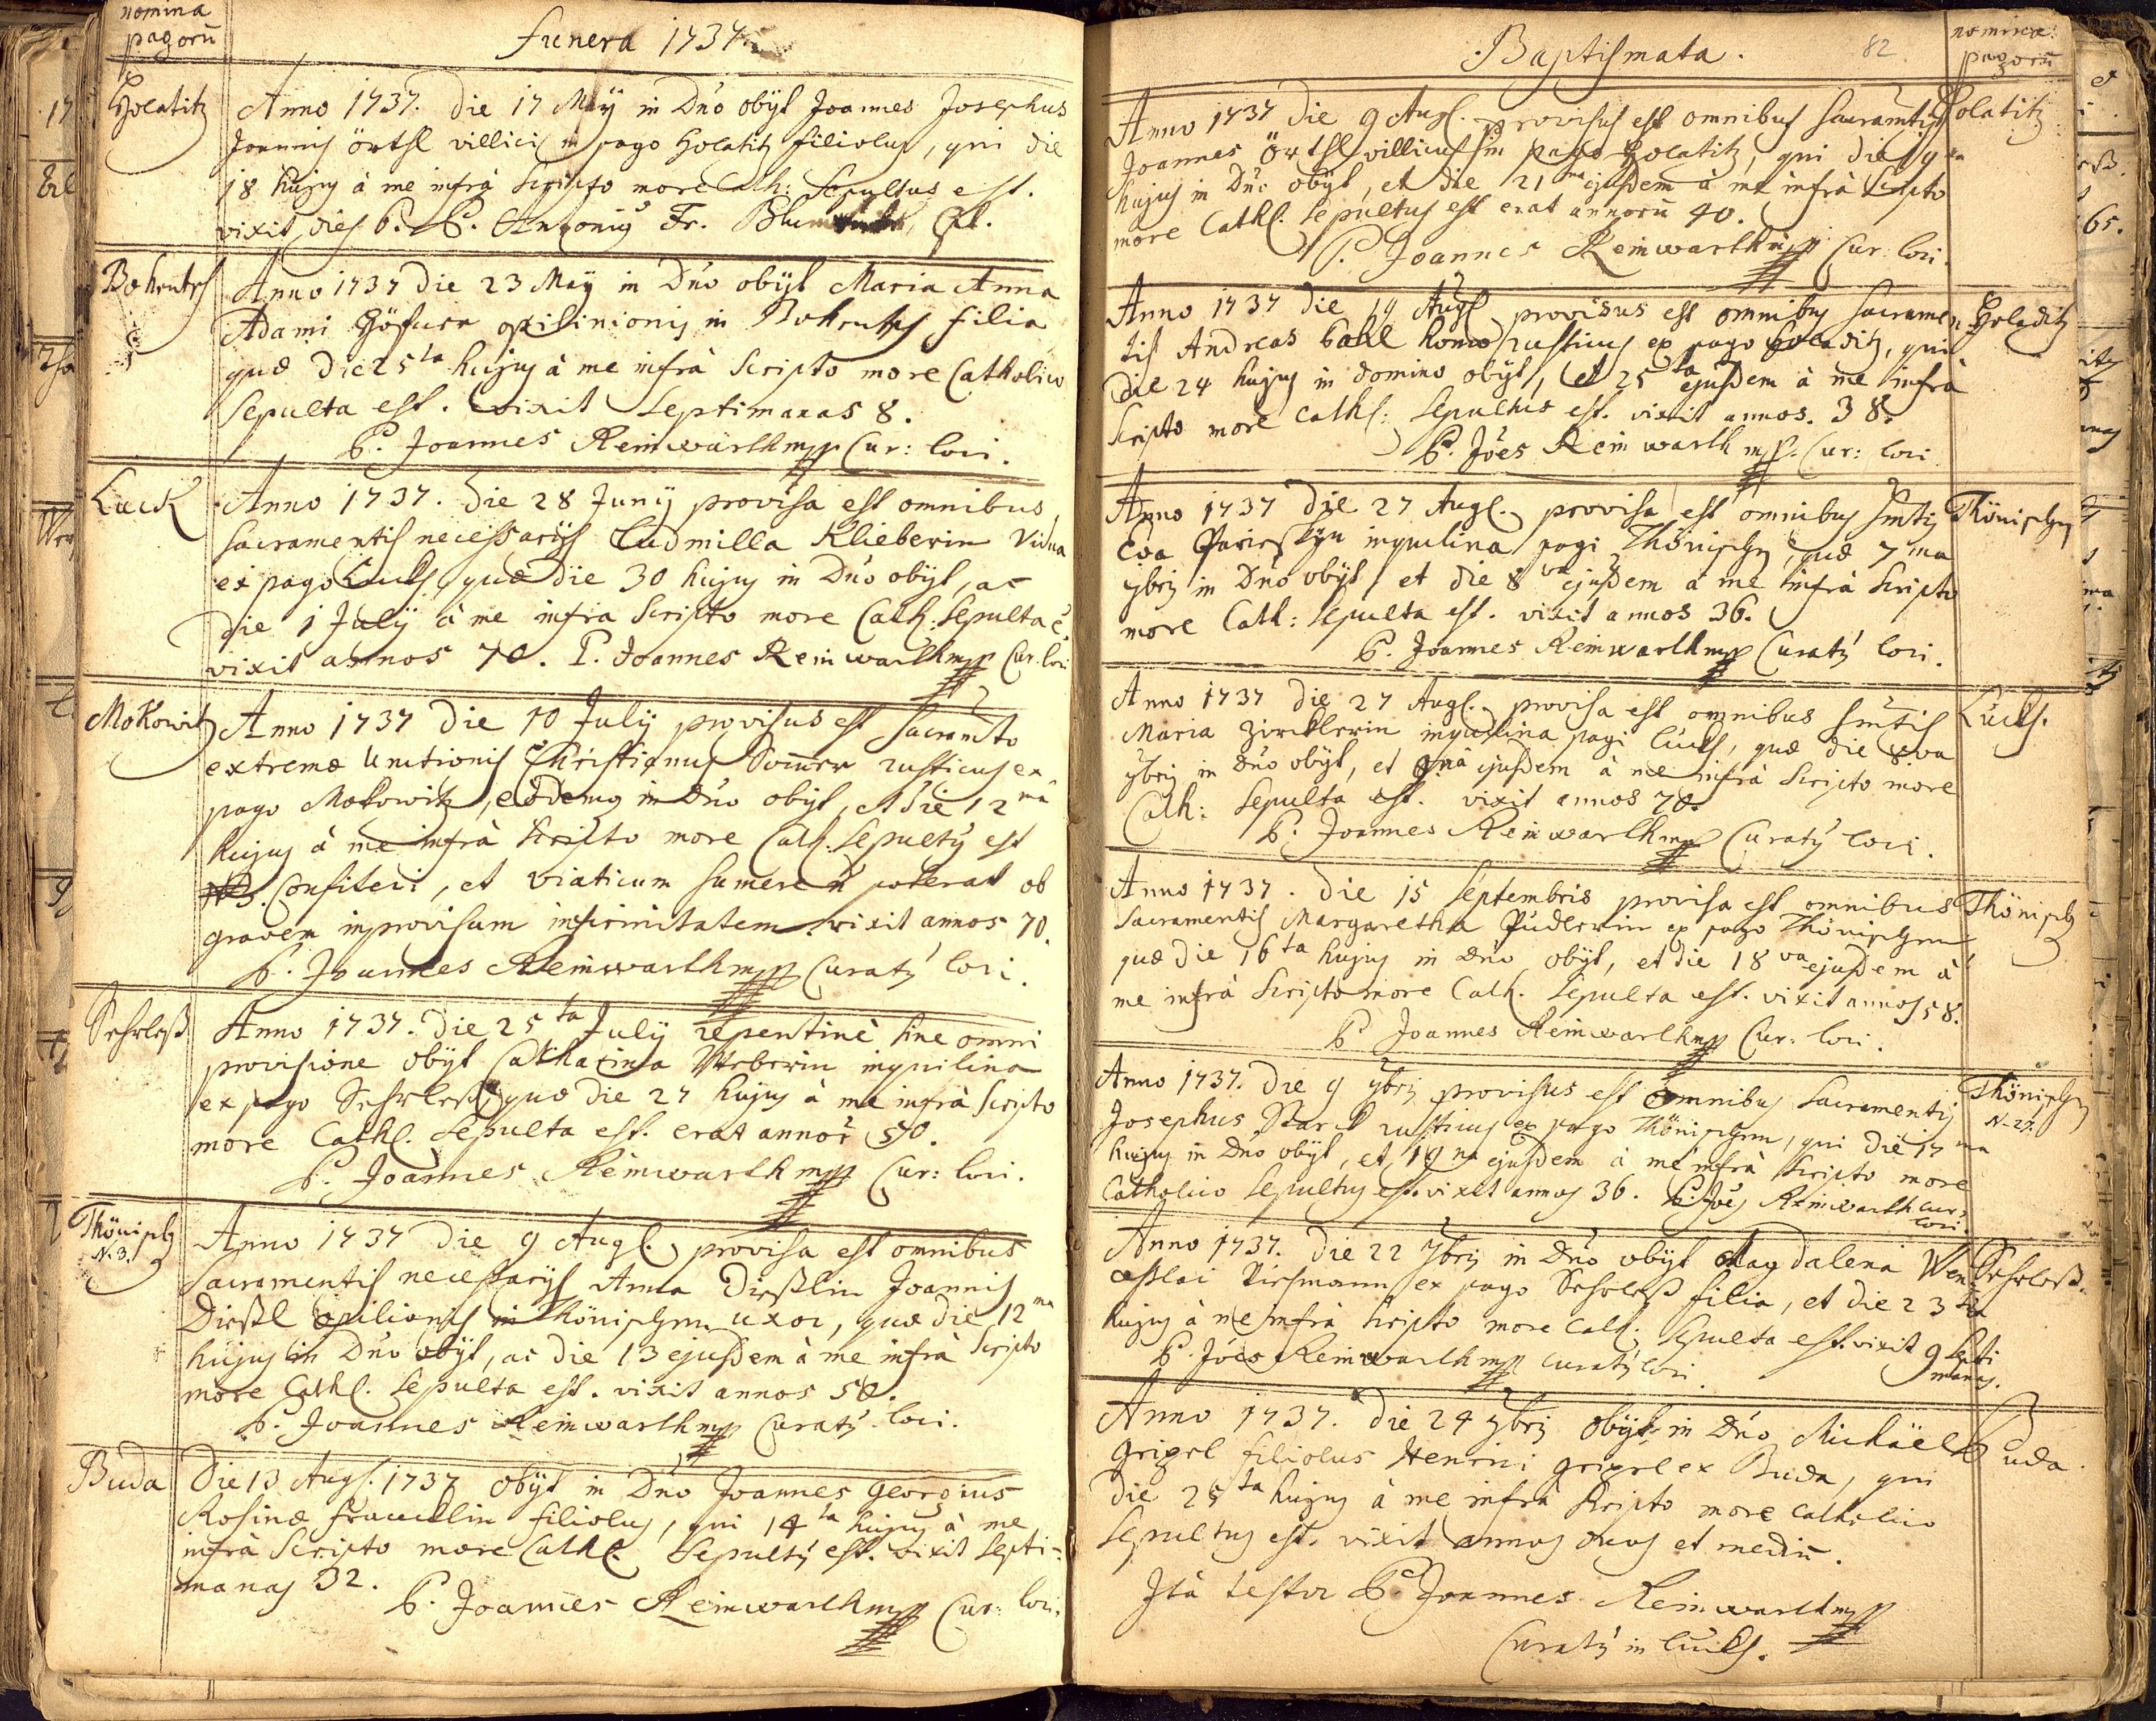 nomina
pagorū
funera 1737
Holatitz
Anno 1737. die 17 Maÿ in Dn̄o obÿt Joannes Josephus
Joannis Örthl villici in pago Holatitz filiolus, qui die
18 hujus à me infrà Scripto more Cath: Sepultus est.
vixit dies 6. P. Antonius Fr.
Anno 1737 die 23 Maÿ in Dn̄o obÿt Maria Anna
Adami opilionis in filia
quæ die 25ta hujus à me infrà Scripto more Catholico
Sepulta est. vixit Septimanas 8.
P. Joannes Reinwarth mpp Cur: loci.
Luck
Anno 1737. die 28 Junÿ provisa est omnibus
sacramentis necessarÿs Ludmilla Klieberin Vidua
ex pago Luck, quæ die 30 hujus in Dn̄o obÿt, ac
die 1 Julÿ à me infra Scripto more Cath: Sepulta ē.
vixit annos 70. P. Joannes Reinwarth mpp Cur. loci
Mokowitz
Anno 1737 die 10 Julÿ provisus est Sacram̄to
extremæ Unctionis Christianus Som̄er rusticus ex
pago Mokowitz, eodemq in Dn̄o obÿt, et die 12ma
hujus à me infrà Scripto more Cath. Sepulty est
NB. Confiteri, et viaticum sumere n̄ poterat ob
gravem improvisam infirmitatem. vixit annos 70.
P. Joannes Reinwarth mpp Curatÿ loci.
Sehrless
Anno 1737. die 25ta Julÿ repentinè sine omni
provisione obÿt Catharina Weberin inquilina
ex pago Sehrless, quæ die 27 hujus à me infrà scripto
more Cathl. Sepulta est. erat annor̄ 50.
P. Joannes Reinwarth mpp Cur: loci.
N. 3.
Anno 1737 die 9 Augl. provisa est omnibus
Sacramentis necessarÿs Anna Diesslin Joannis
Diessl opilionis in uxor, quæ die 12ma
hujus in Dn̄o obÿt, ac die 13 ejusdem à me infrà Scripto
more Cathl. Sepulta est. vixit annos 50.
P. Joannes Reinwarth mpp Curatÿ loci.
Buda
Die 13 Augl. 1737 obÿt in Dn̄o Joannes Georgius
Rosinæ filiolus, qui 14ta hujus à me
infrà Scripto more Cathl. Sepultÿ est. vixit Septi-
manas 32.
P. Joannes Reinwarth mpp Cur: loci.
Baptismata.
82
nomina
pagorū
Holatitz
Anno 1737 die 9 Augl. provisus est omnibus sacram̄tis
Joannes Örthl villicus in pago Holatitz, qui die 19na
hujus in Dn̄o obÿt, et die 21ma ejusdem à me infrà Scripto
more Cathl. Sepultus est erat annorū 40.
P. Joannes Reinwarth mpp Cur: loci.
Holaditz
Anno 1737 die 19 Augl provisus est omnibus Sacramen
tis Andreas rusticus ex pago Holaditz, qui
die 24 hujus in domino obÿt, et 25ta ejusdem à me infrà
Scripto more cathl: Sepultus est. vixit annos. 38.
P. Jōes Reinwarth mpp. Cur: loci
Anno 1737 die 27 Augl. provisa est omnibus Sm̄tis
Eva inquilina pagi quæ 7ma
7bris in Dn̄o obÿt, et die 8va ejusdem à me infrà Scripto
more Cath: Sepulta est. vixit annos 36.
P. Joannes Reinwarth mpp Curatÿ loci.
Anno 1737 die 27 Augl. provisa est omnibus Sm̄tis
Maria inquilina pagi Luck, quæ die 8va
7bris in Dn̄o obÿt, et 9nà ejusdem à me infrà Scripto more
Cath: Sepulta est. vixit annos 70.
P. Joannes Reinwarth mpp Curatÿ loci.
Anno 1737. die 15 Septembris provisa est omnibus
Sacramentis Margaretha Puderin ex pago
quæ die 16ta hujus in Dn̄o obÿt, et die 18va ejusdem à
me infrà Scripto more Cath. Sepulta est. vixit annos 58.
P. Joannes Reinwarth mpp Cur: loci.
N. 27.
Anno 1737. die 9 7bris provisus est omnibus Sacramentis
Josephus Starck rusticus ex pago qui die 17ma
hujus in Dn̄o obÿt, et 19na ejusdem à me infrà Scripto more
Catholico Sepultus est. vixit annos 36. P. Jōes Reinwarth cur:
loci.
Sehrless.
Anno 1737. die 22 7bris in Dn̄o obÿt Magdalena Wen
ceslai Pirsmann ex pago Sehrless filia, et die 23tia
hujus à me infrà Scripto more Cath: Sepulta est. vixit 9 Septi
manas.
P. Jōes Reinwarth mpp Curatÿ loci
Buda
Anno 1737. die 24 7bris obÿt in Dn̄o Michäel
Grigel filiolus Henrici Grigel ex Buda, qui
die 25ta hujus à me infrà Scripto more catholico
Sepultus est. vixit annos duos et mediū.
Ità testor P. Joannes Reinwarth mpp
Curatÿ in Luck.